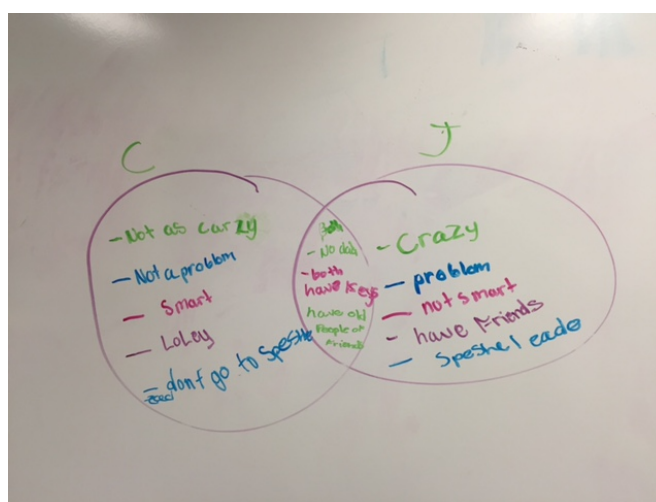 C
- Not as carzy
- Not a problom
- Smart
- LoLey
- dont go to speshel
eaed
Both
- No dad
- both
have keys
have old
People as
Friends
J
- Crazy
- problom
- not smart
- have Friends
- Speshel eade